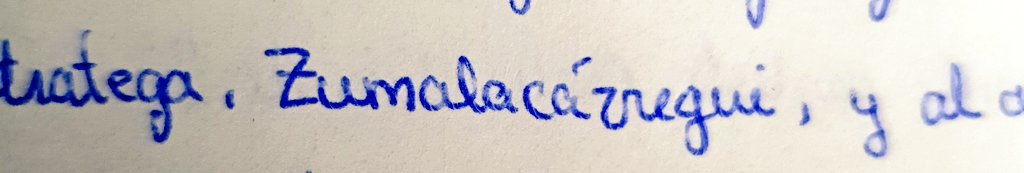 tratega, Zumalacárregui, y al